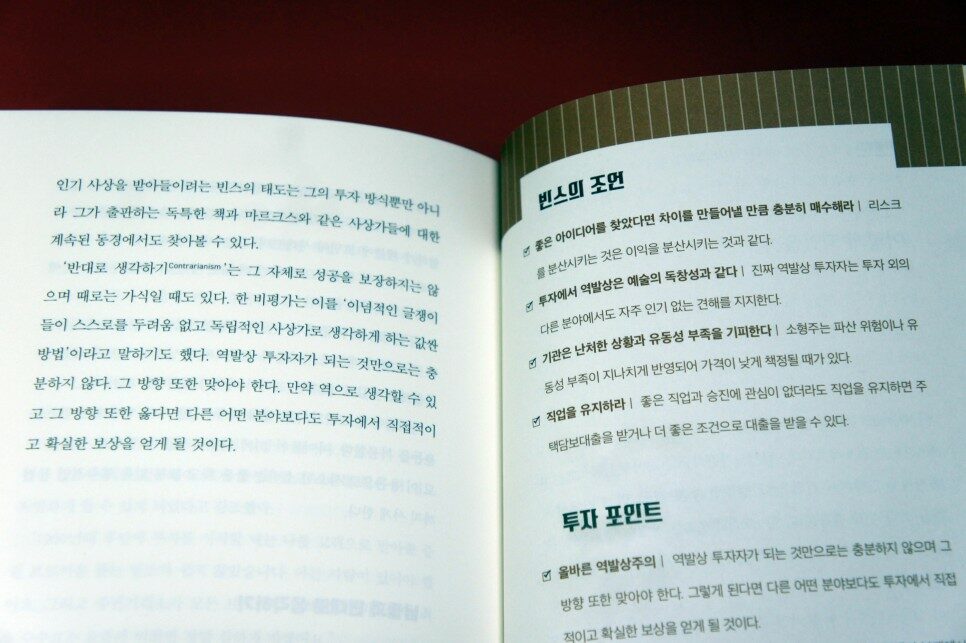 인기 사상을 받아들이려는 빈스의 태도는 그의 투자 방식뿐만 아니
라 그가 출판하는 독특한 책과 마르크스와 같은 사상가들에 대한
계속된 동경에서도 찾아볼 수 있다.
'반대로 생각하기Contrarianism'는 그 자체로 성공을 보장하지는 않
으며 때로는 가식일 때도 있다. 한 비평가는 이를 '이념적인 글쟁이
들이 스스로를 두려움 없고 독립적인 사상가로 생각하게 하는 값싼
방법'이라고 말하기도 했다. 역발상 투자자가 되는 것만으로는 충
분하지 않다. 그 방향 또한 맞아야 한다. 만약 역으로 생각할 수 있
고 그 방향 또한 옳다면 다른 어떤 분야보다도 투자에서 직접적이
고 확실한 보상을 얻게 될 것이다.
빈스의 조언
좋은 아이디어를 찾았다면 차이를 만들어낼 만큼 충분히 매수해라 | 리스크
를 분산시키는 것은 이익을 분산시키는 것과 같다.
투자에서 역발상은 예술의 독창성과 같다 | 진짜 역발상 투자자는 투자 외의
다른 분야에서도 자주 인기 없는 견해를 지지한다.
기관은 난처한 상황과 유동성 부족을 기피한다 | 소형주는 파산 위험이나 유
동성 부족이 지나치게 반영되어 가격이 낮게 책정될 때가 있다.
직업을 유지하라 | 좋은 직업과 승진에 관심이 없더라도 직업을 유지하면 주
택담보대출을 받거나 더 좋은 조건으로 대출을 받을 수 있다.
투자 포인트
올바른 역발상주의 | 역발상 투자자가 되는 것만으로는 충분하지 않으며 그
방향 또한 맞아야 한다. 그렇게 된다면 다른 어떤 분야보다도 투자에서 직접
적이고 확실한 보상을 얻게 될 것이다.